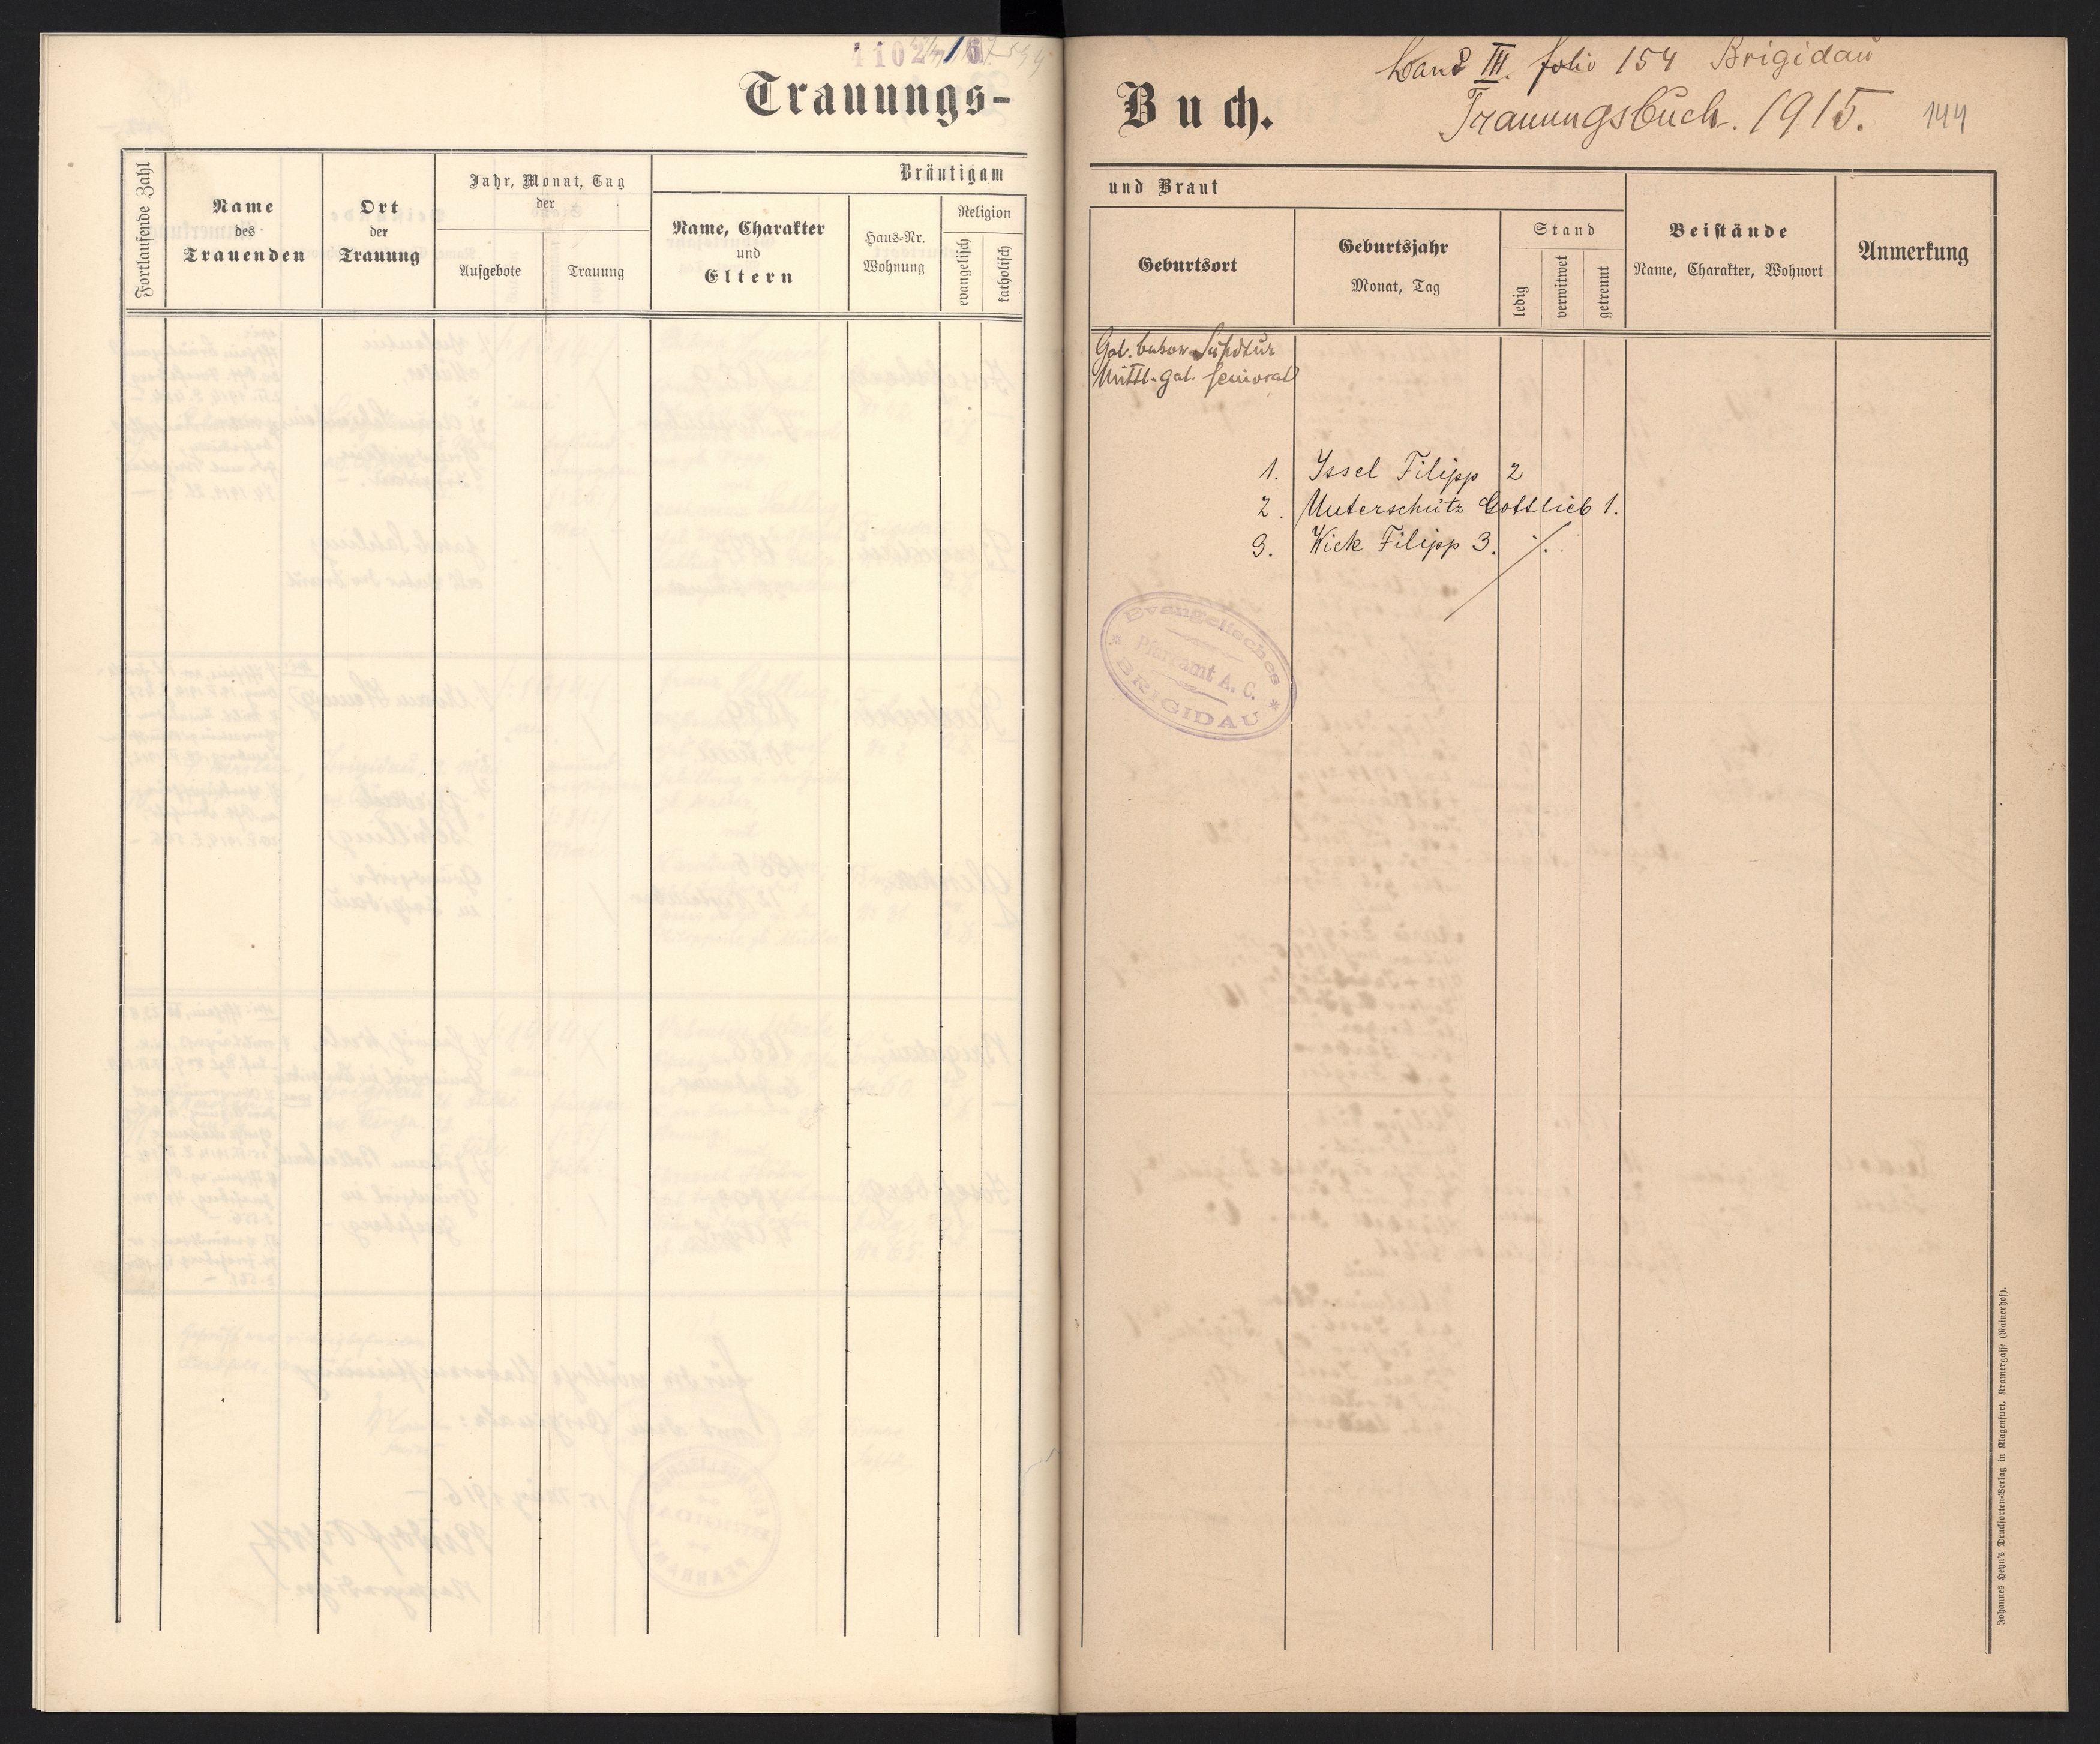 Trauungs-
Fortlaufende Zahl
Name
des
Trauenden
Ort
der
Trauung
Jahr, Monat, Tag
der
Aufgebote
Trauung
Bräutigam
Name, Charakter
und
Eltern
Haus-Nr.
Wohnung
Religion
evangelisch
katholisch
Band III. folio 154 Brigidau
Buch.
Trauungsbuch. 1915.
144
und Braut
Geburtsort
Geburtsjahr
Monat, Tag
Stand
ledig
verwitwet
getrennt
Beistände
Name, Charakter, Wohnort
Anmerkung
Gal. bukow. Supdtur
Mittl. gal. Seniorat
1. Issel Filipp 2
2. Unterschütz Gottlieb 1.
3. Wick Filipp 3. ./.
Evangelisches
Pfarramt A. C.
BRIGIDAU
Johannes Heyn's Drucksorten-Verlag in Klagenfurt, Kramergasse (Rainerhof).